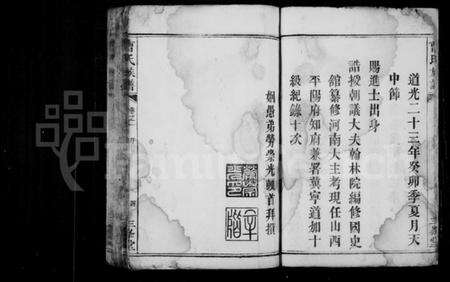 道光二十三年癸卯季夏月天
中節
賜進士出身
誥授朝議大夫翰林院編修國史
館纂修河南大主考現任山西
平陽府知府兼署冀寧道加十
級紀錄十次
姻愚弟勞崇光頓首拜撰
氏族譜